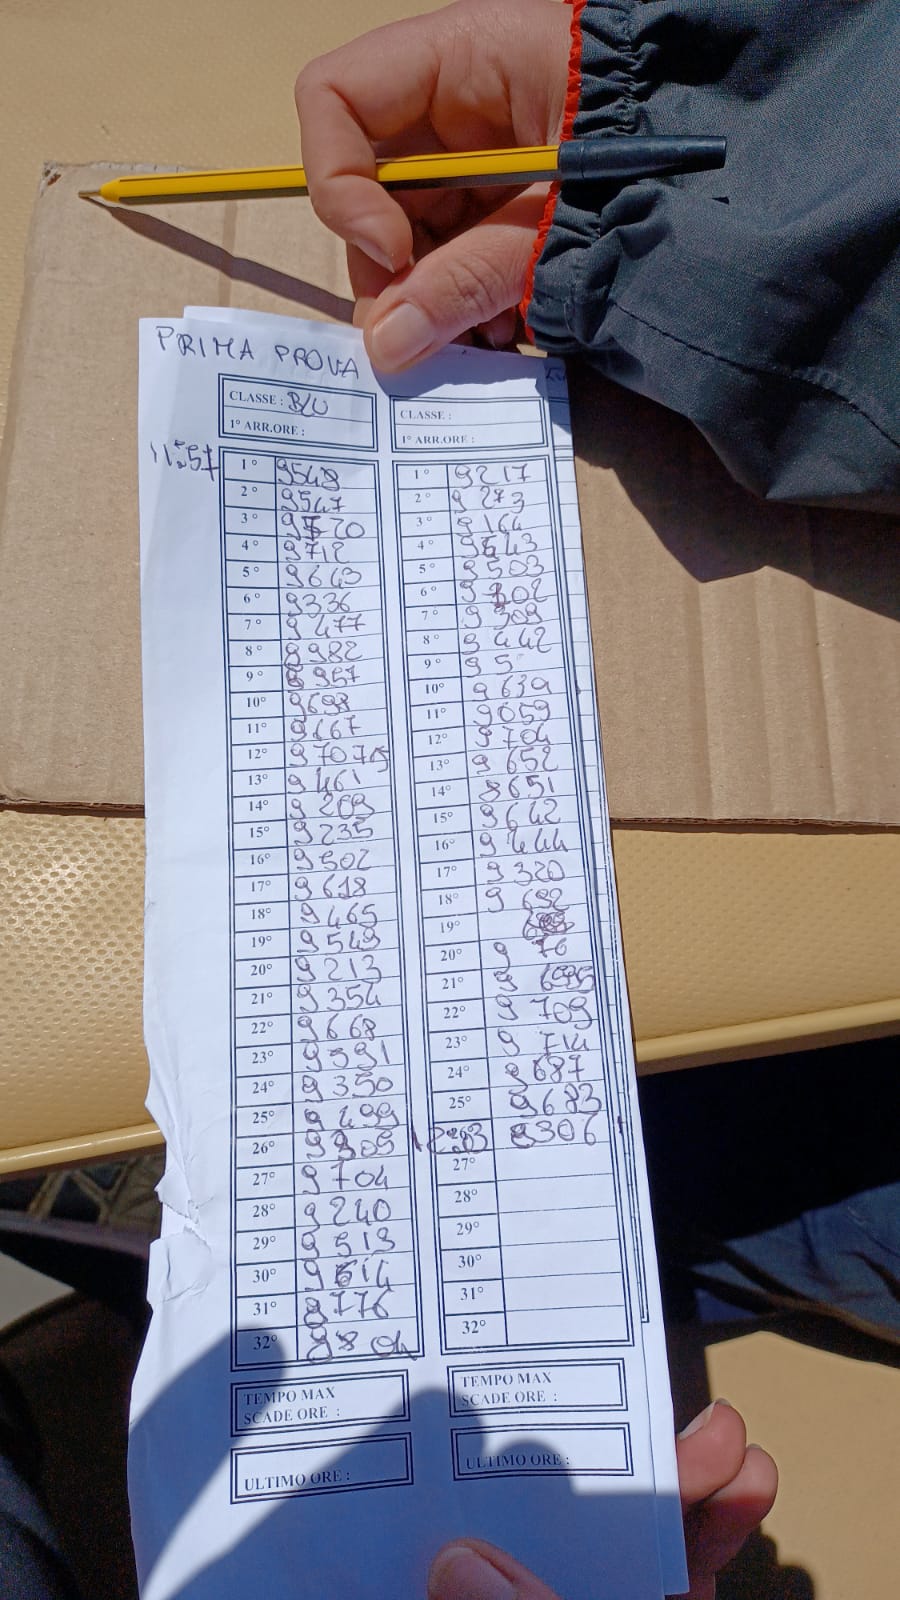 PRIMA PROVA
CLASSE : BLU
1° ARR.ORE :
11:57
1° 9548
2° 9547
3° 9720
4° 9712
5° 9643
6° 9336
7° 9477
8° 8982
9° 8957
10° 9698
11° 9667
12° 9707
13° 9461
14° 9269
15° 9235
16° 9502
17° 9618
18° 9465
19° 9549
20° 9213
21° 9354
22° 9668
23° 9391
24° 9350
25° 9499
26° 9309
27° 9704
28° 9240
29° 9513
30° 9614
31° 9776
32°
TEMPO MAX
SCADE ORE :
ULTIMO ORE :
CLASSE :
1° ARR.ORE :
1° 9217
2° 9273
3° 9164
4° 9643
5° 9503
6° 9302
7° 9309
8° 9442
9° 95
10° 9639
11° 9059
12° 9704
13° 9652
14° 8651
15° 9642
16° 9444
17° 9320
18° 9692
19°
20° 9 76
21° 9 695
22° 9709
23° 9714
24° 9687
25° 9683
12:03 9306
27°
28°
29°
30°
31°
32°
TEMPO MAX
SCADE ORE :
ULTIMO ORE :